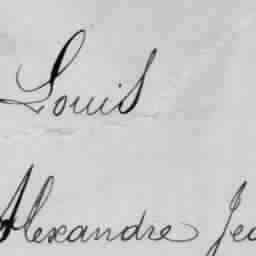 Louis
Alexandre Jea